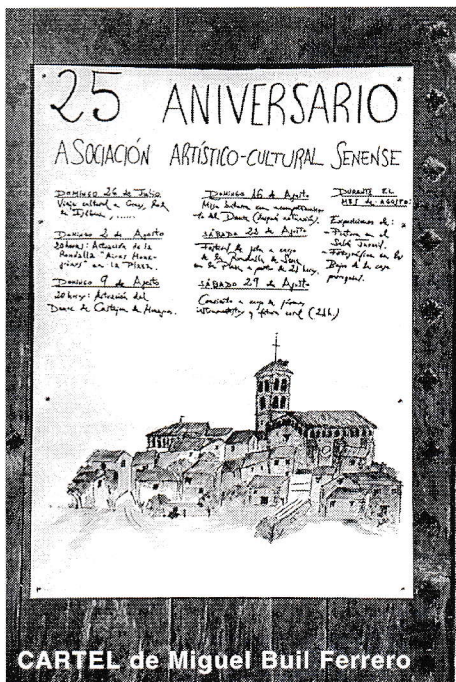 25 ANIVERSARIO
ASOCIACIÓN ARTÍSTICO-CULTURAL SENENSE
DOMINGO 26 de Julio
Viaje cultural a
DOMINGO 2 de Agosto
20 horas: Actuación de la
Rondalla "Aires Mone-
grinos" en la Plaza.
DOMINGO 9 de Agosto
20 horas: Actuación del
Dance de Castejón de Monegros.
DOMINGO 16 de Agosto
Misa
del Dance
SÁBADO 22 de Agosto
Festival de jota a cargo
de la Rondalla de Sena
en la Plaza, a partir de
SÁBADO 29 de Agosto
Concierto a cargo de
y
DURANTE EL
MES de AGOSTO:
Exposiciones de:
- Pintura en el
Salón Juvenil.
- Fotográfica en los
Bajos de la casa
parroquial.
CARTEL de Miguel Buil Ferrero